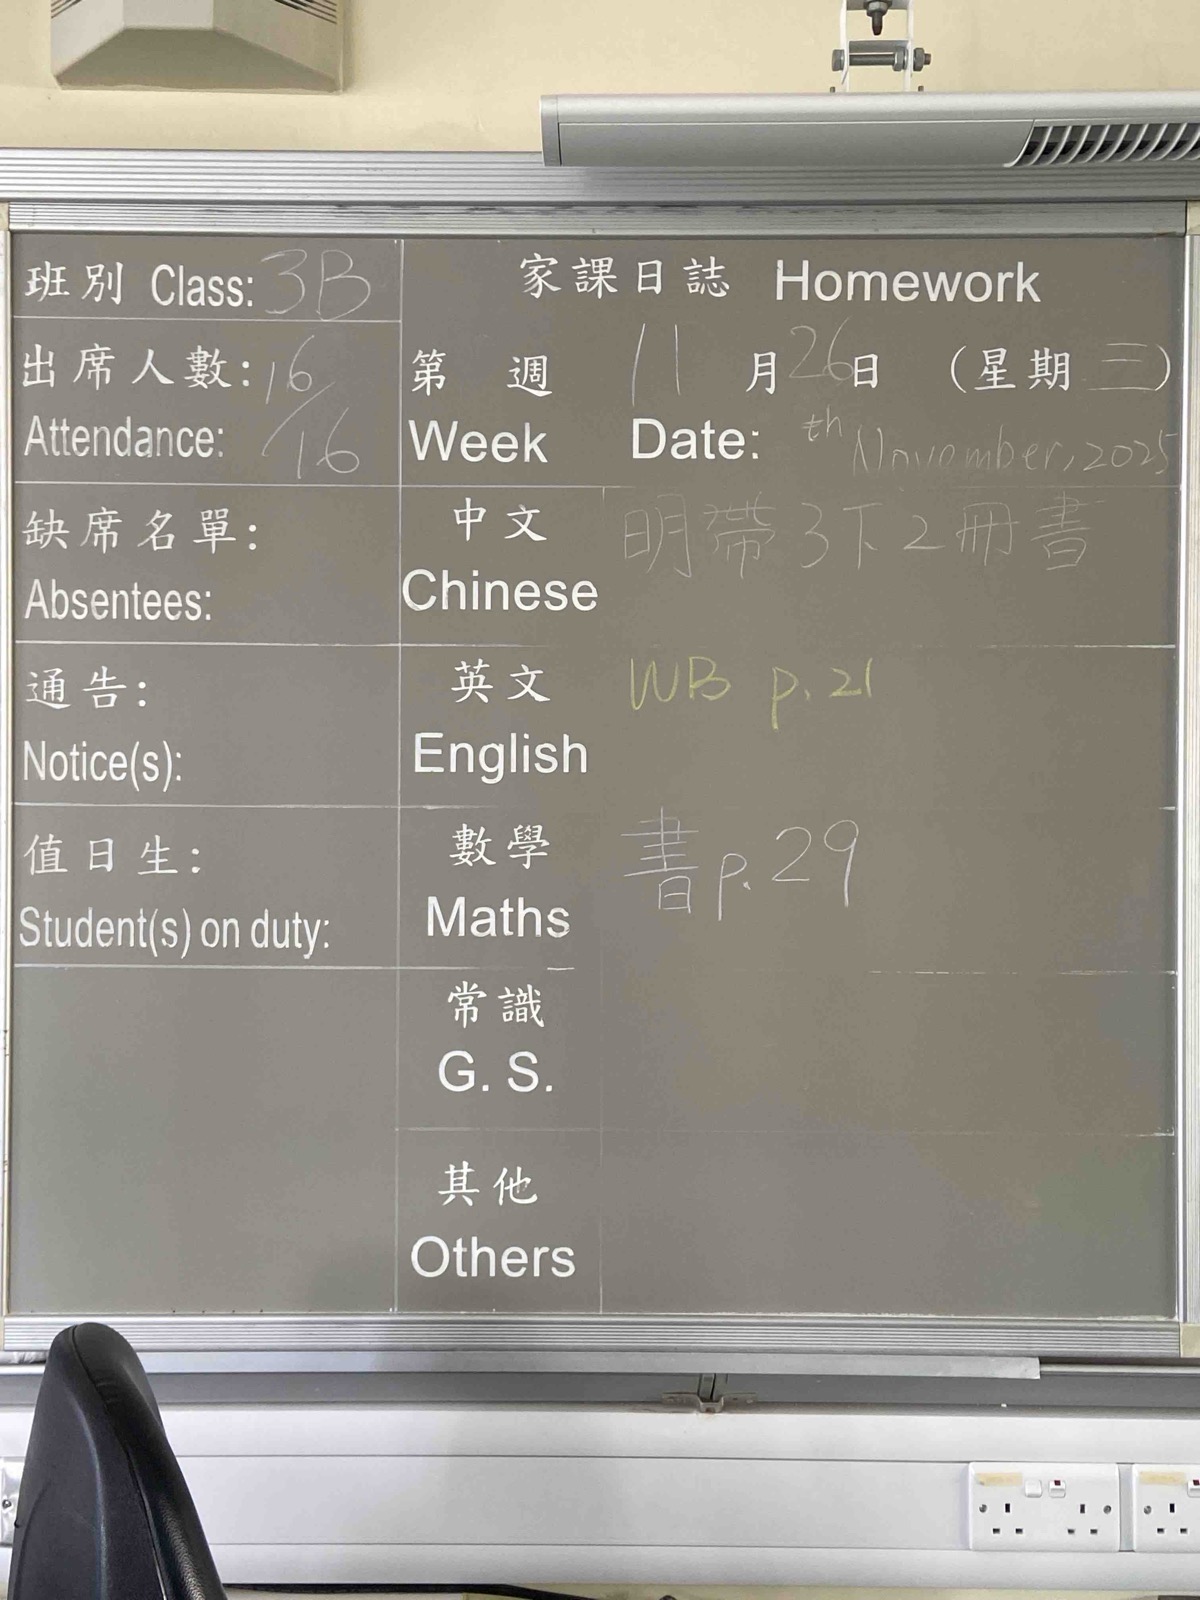 班別 Class: 3B
出席人數: 16
Attendance: /16
缺席名單:
Absentees:
通告:
Notice(s):
值日生:
Student(s) on duty:
家課日誌 Homework
第 週 11 月 26 日 (星期 三)
Week Date: th November, 2025
中文 明帶3下2冊書
Chinese
英文 WB p.21
English
數學 書p.29
Maths
常識
G. S.
其他
Others